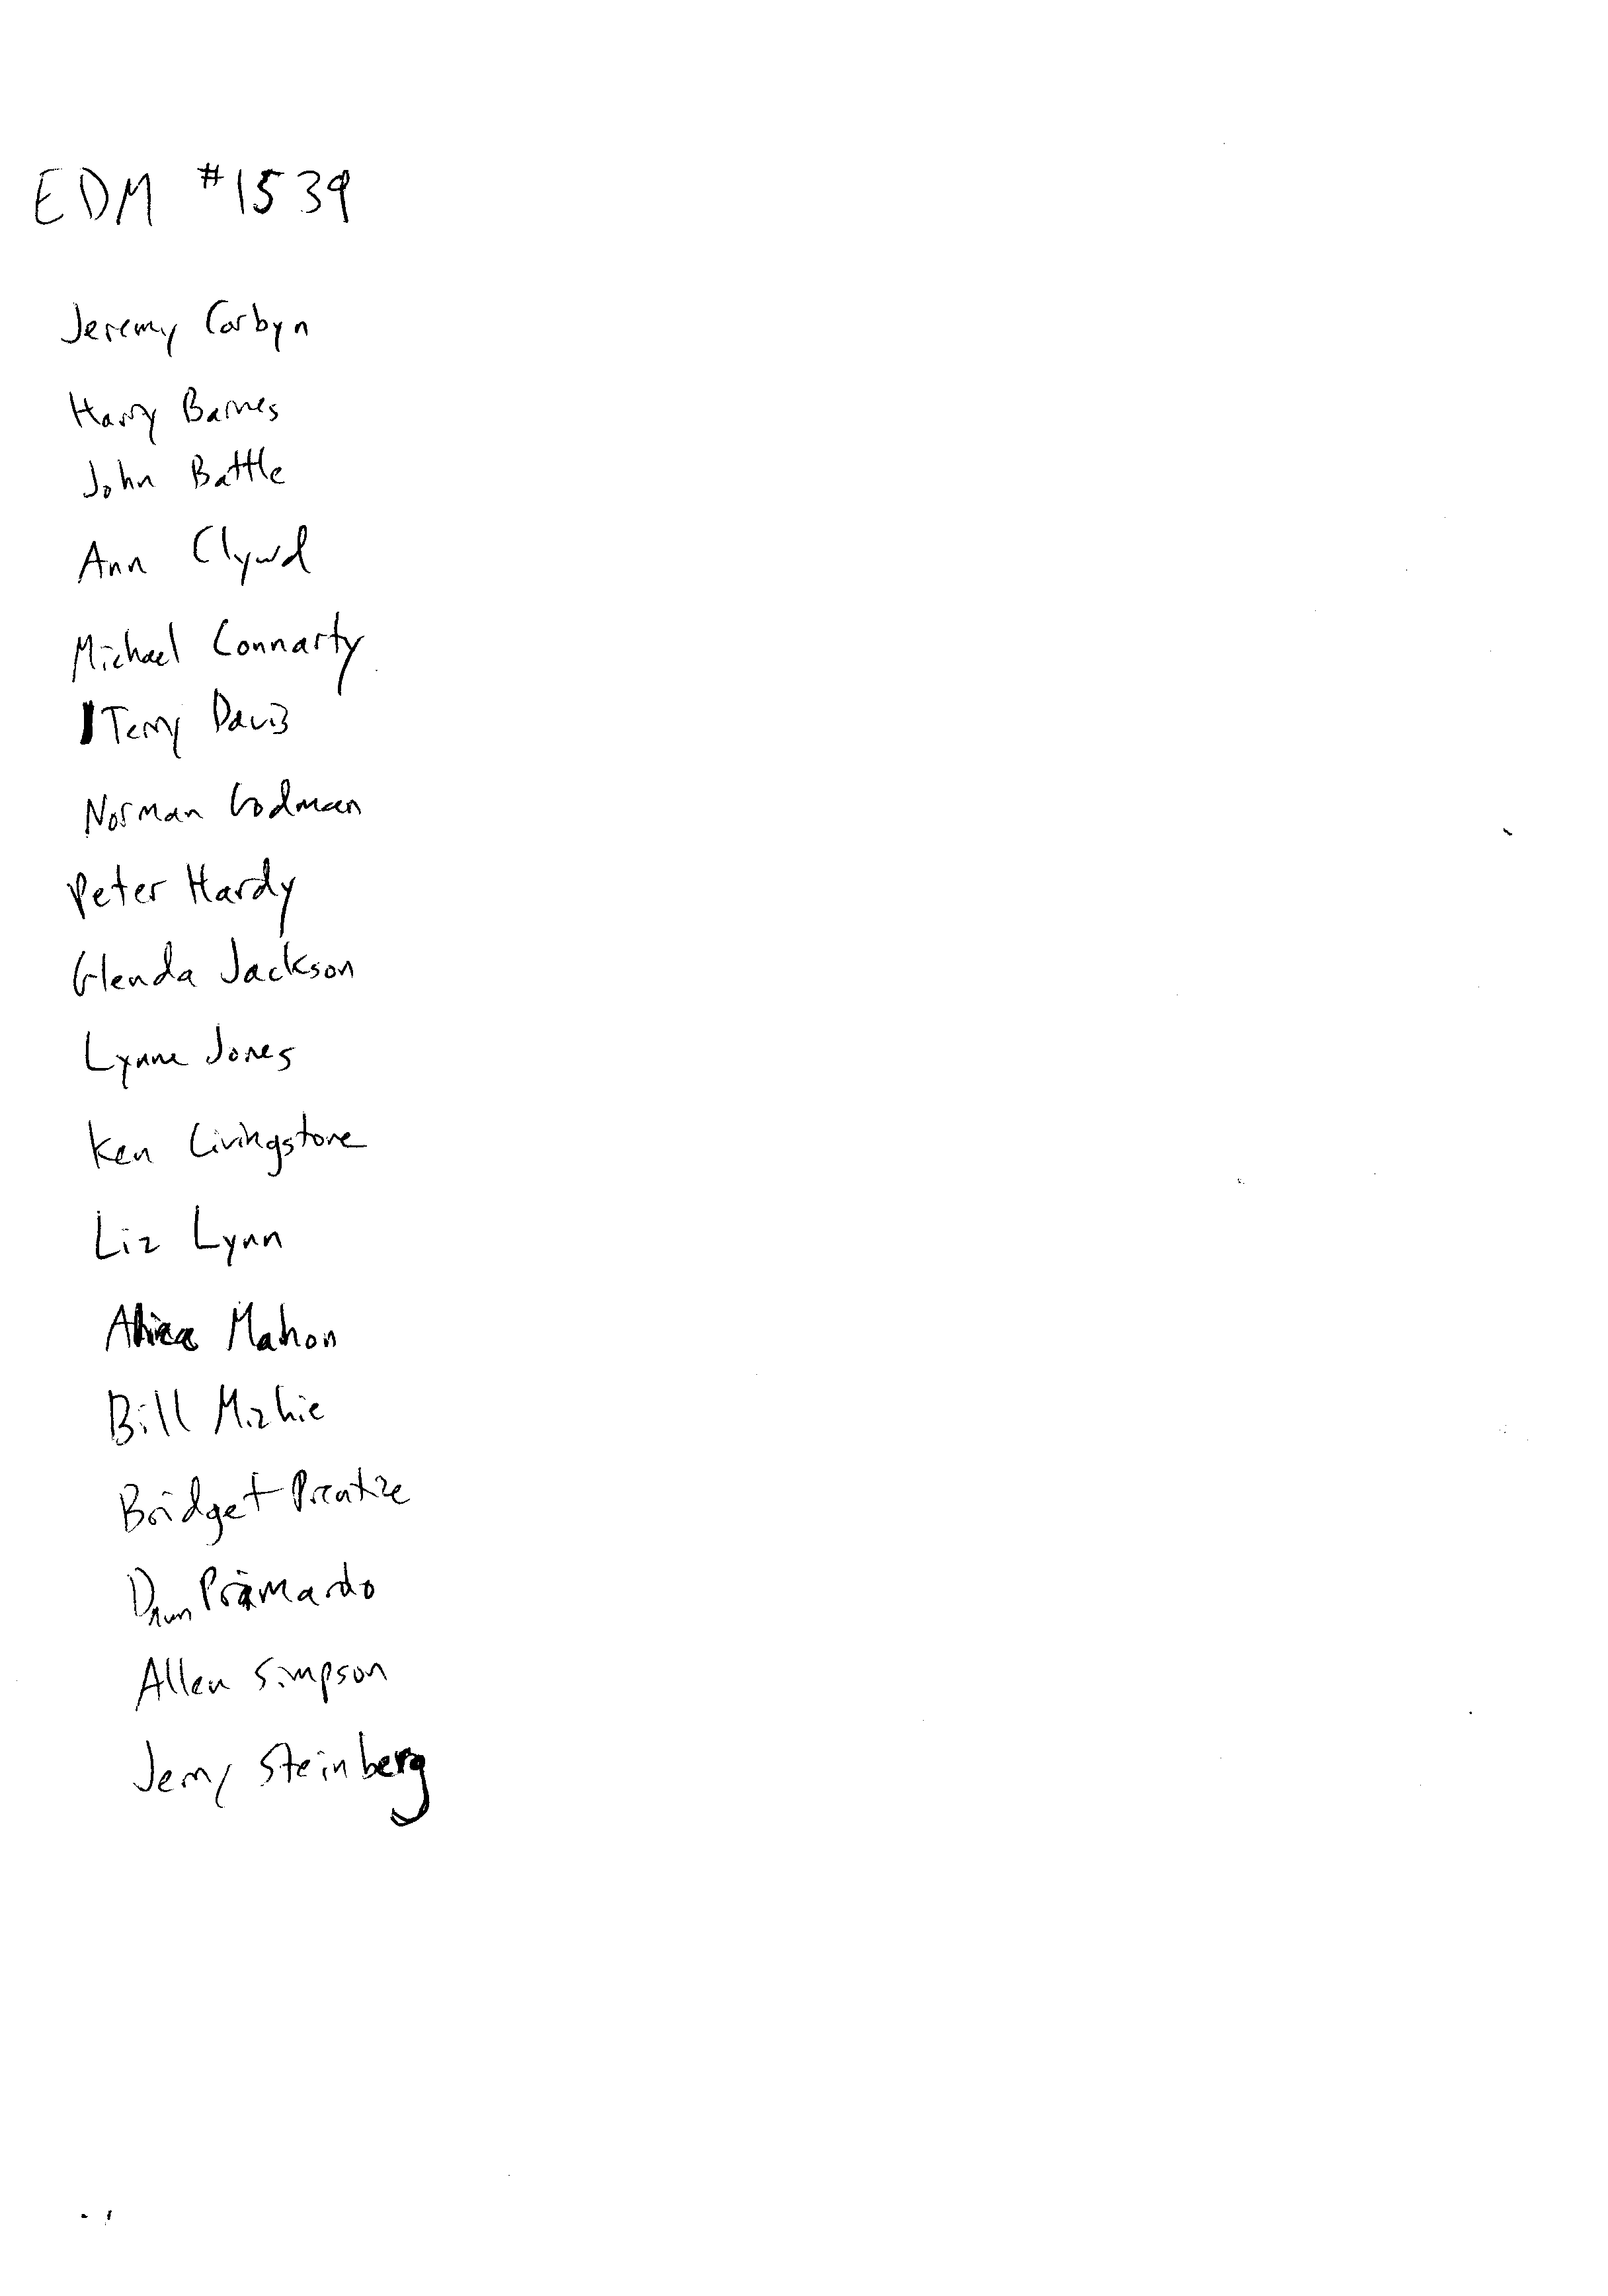 EDM #1539
Jeremy Corbyn
Harry Barnes
John Battle
Ann Clywd
Michael Connarty
Terry Davis
Norman Godman
Peter Hardy
Glenda Jackson
Lynne Jones
Ken Livingstone
Liz Lynn
Alice Mahon
Bill Michie
Bridget Prentice
Dawn Primardo
Allen Simpson
Jerry Steinberg